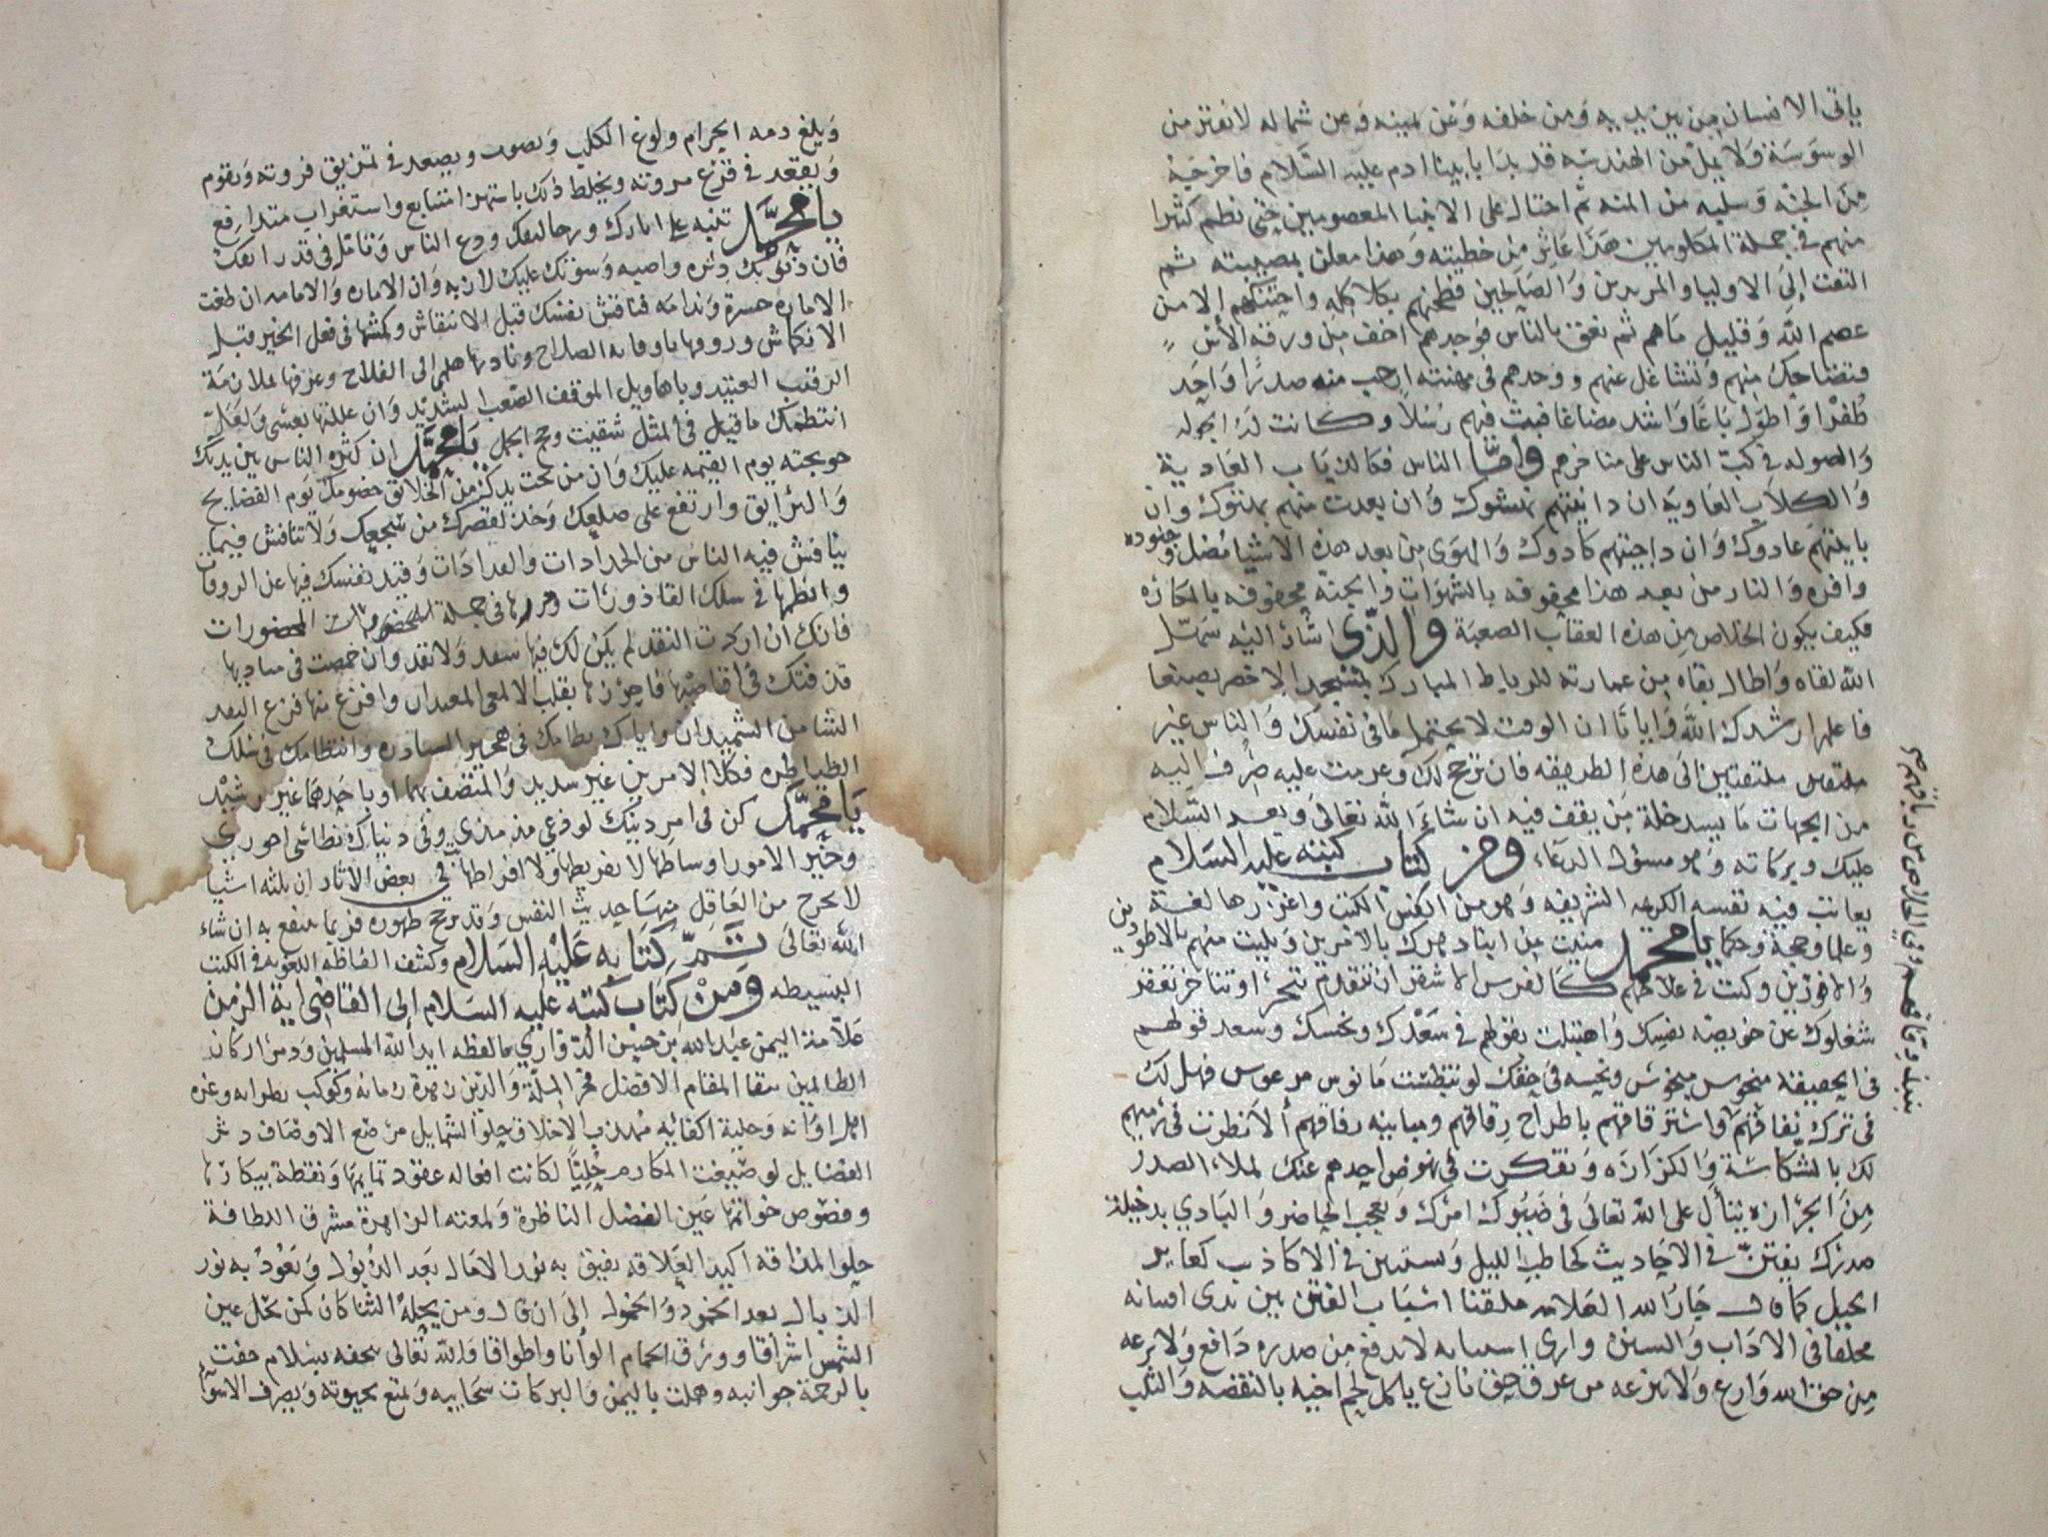 ياتى الانسان من بين يديه ومن خلفه وعن يمينه وعن شماله لا يفتر من
الوسوسة ولا يمل من الهندسه قد بدا بابينا ادم عليه السلام فاخرجه
من الجنه وسلبه من المنه ثم احتال على الانبيا المعصومين حتى نظم كثيرا
منهم في جملة المكلومين هذا عاثر من خطيته وهذا معلن بمصيبته ثم
التفت الى الاوليا والمريدين والصالحين فطحنهم بكلاكله واحتنكهم الا من
عصم الله وقليل ماهم ثم نعق بالناس فوجدهم اخف من ورقه الاثل
فتضاحك منهم وتشاغل عنهم ووجدهم في مهنته ارحب منه صدرا واحد
ظفرا واطول باعا واشد مضاعا فبث فيهم رسلا وكانت له الجوله
والصوله في كب الناس على مناخرهم واما الناس فكالذياب العادية
والكلاب العاويه ان دانيتهم نهشوك وان بعدت منهم بهتوك وان
باينتهم عادوك وان داجنتهم كادوك والهوى من بعد هذه الاشيا فضل وجنوده
وافره والنار من بعد هذا محفوفه بالشهوات والجنه محفوفه بالمكاره
فكيف يكون الخلاص من هذه العقاب الصعبة والذي اشار اليه سهل
الله لقاه واطال بقاه من عمارته للرباط المبارك بمسجد الاخضر بصنعا
فاعلم ارشدك الله وايانا ان الوقت لا يحتمل مافي نفسك والناس غير
ملتفتين الى هذه الطريقه فان ترجح لك وعزمت عليه صرف اليه
من الجهات ما يسد خلة من يقف فيه ان شاء الله تعالى وبعد السلام
عليك وبركاته وهو مسؤل الدعاء ومن كتاب كتبه عليه السلام
يعاتب فيه نفسه الكريمه الشريفه وهو من انفس الكتب واغزرها لغة
وعلما وحجة وحكما يا محمد منيت من ابناء دهرك بالامرين وبليت منهم بالاطورين
والاقورين وكنت في علاجهم كالفرس الاشقر ان تتقدم تنحر او تتاخر تعقر
شغلوك عن خويصه نفسك واهتبلت بقولهم في سعدك ونحسك وسعد قولهم
في الحقيقه منحوس مبخوس ونحسه في حقك لو تنطست مانوس مرغوس فهل لك
في ترك نفاقهم واسترقاقهم باطراح رقاقهم ومباينه رفاقهم الا نظرت في رميهم
لك بالشكاسة والكزازه وتفكرت في نهوض احدهم عنك لملاء الصدر
من الحزازه يتأل على الله تعالى في ضبوك امرك ويعجب الحاضر والبادي بدخيلة
صدرك يفتن في الاحاديث كحاطب الليل ويستن في الاكاذيب كعاير
الخيل كما قال جار الله العلامه ملقنا اسباب الفتن بين ندى اسنانه
مخلفا في الاداب والسنن وارى اسنانه لا يدفع من صدره دافع ولا يرعه
من حق الله وارع ولا ينزعه من عرق حق نازع ياكل لحم اخيه بالنقصه والثلب
ويلغ دمه الحرام ولوغ الكلب ويصوب ويصعد في تمزيق فروته ويقوم
ويقعد في قرع مروته ويخلط ذلك باستهزا متتابع واستغراب متدارفع
يا محمد تنبه على امارك ورجا لنفك ودع الناس وتأمل في قدر انفك
فان ذنوبك دثره واصبه وسورتك عليك لازبه وان الاماره والامامه ان طغت
الاماره حسرة وندامه فناقش نفسك قبل الانتقاش وكمشها في فعل الخير قبل
الانكماش وروها باوقات الصلاح ونادها هلمي الى الفلاح وعرفها بملازمة
الرقيب العتيد وباهاويل الموقف الصعب الشديد وان عللتها بعسى ولعل
انتظمك ما قيل في المثل شقيت وحج الجمل يا محمد ان كثره الناس بين يديك
حوبجته يوم القيمه عليك وان من تحت يدك من الخلايق خصومك يوم الفضايح
والبرايق وارتفع على ضلعك وخذ لقصرك من سجعك ولا تنافس فيما
ينافس فيه الناس من الحدادات والعدادات وقيد نفسك فيها عن الروقات
وانظمها في سلك القاذورات في جملة المحضورات
فانك ان اردت النقد لم يكن لك فيها سعد ولا نقد وان خمصت في مباديها
قذفتك في اقاصيها فاحزنها بقلب الالمعي المعيدان وافزع منها فزع البعد
الشامن الشميدان واياك نظامك في همحير السادره وانتظامك في سلك
الظياطره فكلا الامرين غير سديد والمتصف بهما او باحدهما غير رشيد
يا محمد كن في امر دينك لوذعي وفي دنياك نطاسي احوري
وخير الامور اوساطها لا تفريطها ولا افراطها في بعض الاثار ان ثلثه اشيا
لا يخرج من العاقل منها حديث النفس وقد ترجح ظهوره فربما ينتفع به ان شاء
الله تعالى تم كتابه عليه السلام وكشف الفاظه اللغويه في الكتب
البسيطه ومن كتاب كتبه عليه السلام الى القاضي اية الزمن
علامة اليمن عبد الله بن حسين الدواري ما لفظه ايد الله المسلمين ودمر اركان
الظالمين ببقا المقام الافضل فخر الملة والدين زهرة زمانه وكوكب وغره
اهل اوانه وحلية اكفائه مهذب الاخلاق حلو الشمايل مرضع الاوصاف دثر
الفضايل لو صيغت المكارم حليا لكانت افعاله عقود تمايمها ونقطة بيكارها
وفصوص خواتمها عين الفضل الناظرة ولمعته الزاهرة مشرق اللطافة
حلو المذاقه اكيد العلاقه يفيق به نور الامال بعد الذبول وتعود به نور
الذبال بعد الخمود والخمول الى ان قال ومن يحله الثنا كان كمن نحل عين
الشمس اشراقا وورق الحمام الوانا واطواقا والله تعالى يحفه بسلام حفت
بالرحمة جوانبه وهملت باليمن والبركات سحايبه ويمتع بحيوته ويصرف الاسوا